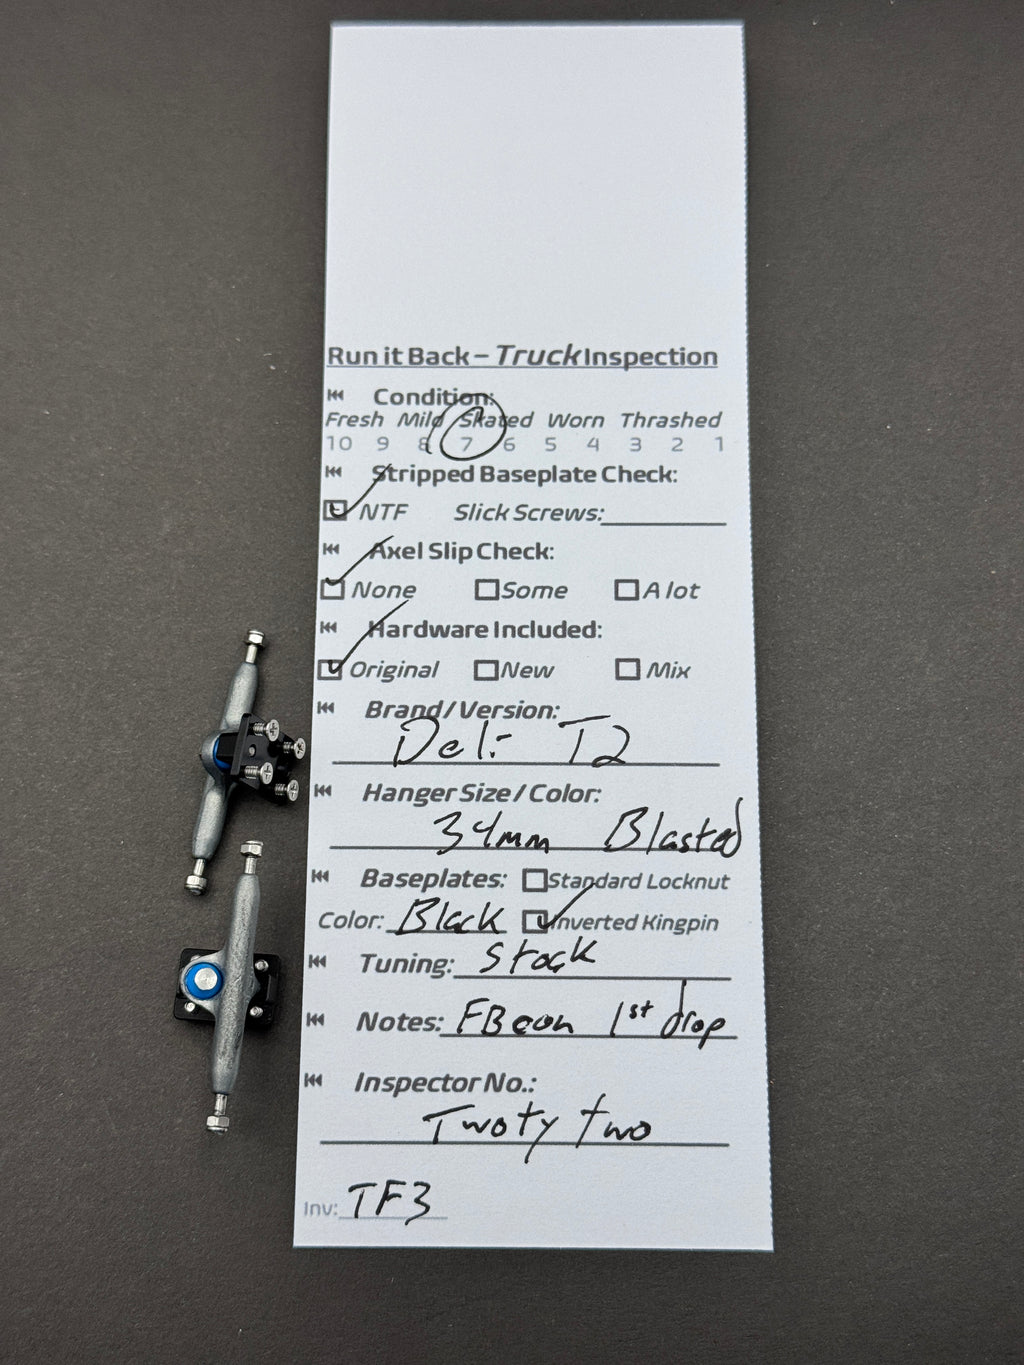 Run it Back – Truck Inspection
Condition:
Fresh Mild Skated Worn Thrashed
10 9 8 7 6 5 4 3 2 1
Stripped Baseplate Check:
NTF Slick Screws:
Axel Slip Check:
None Some A lot
Hardware Included:
Original New Mix
Brand / Version:
Deli T2
Hanger Size / Color:
34mm Blasted
Baseplates: Standard Locknut
Color: Black Inverted Kingpin
Tuning: Stock
Notes: FBcon 1st drop
Inspector No.:
Twoty two
Inv: TF3